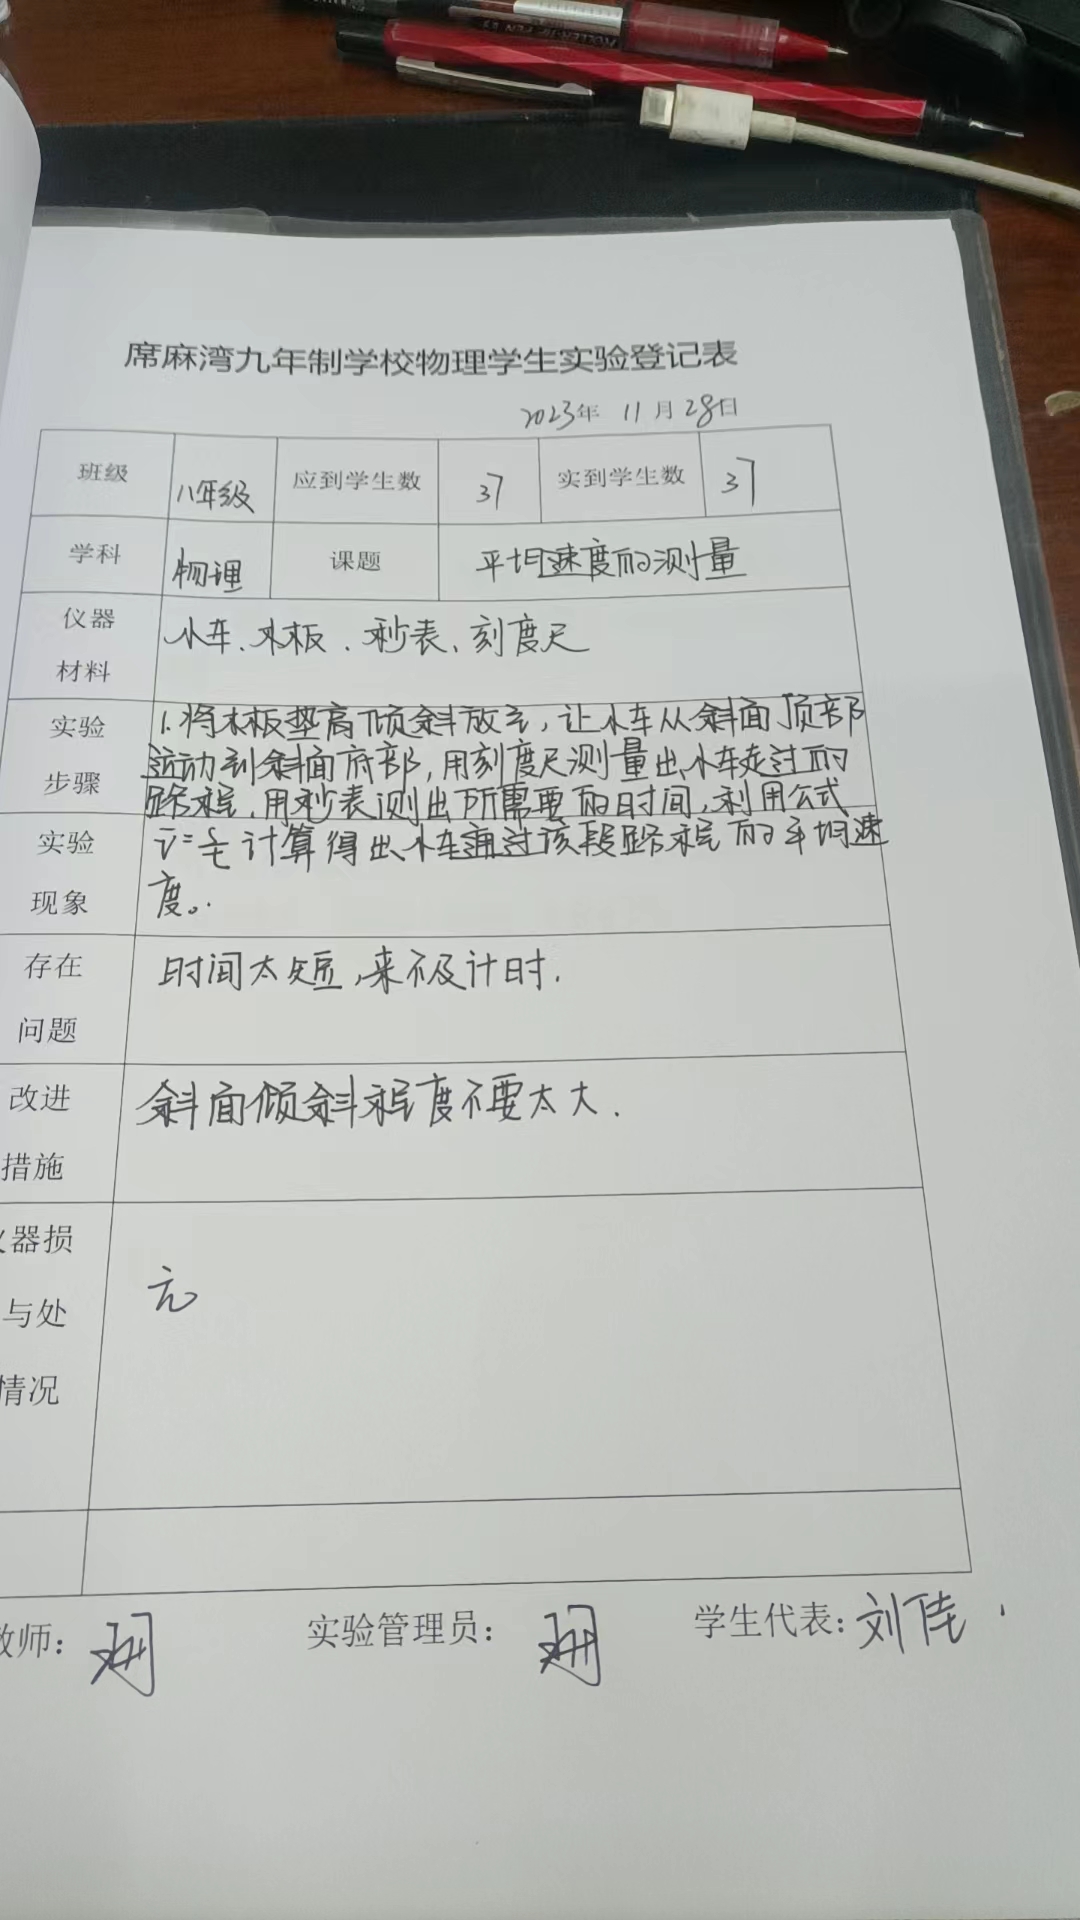 席麻湾九年制学校物理学生实验登记表
2023年 11月28日
班级 八年级 应到学生数 37 实到学生数 37
学科 物理 课题 平均速度的测量
仪器 小车、木板、秒表、刻度尺
材料
实验 1.将木板垫高倾斜放、让小车从斜面顶部
运动到斜面底部,用刻度尺测量出小车走过的
步骤
路程,用秒表测出所需要的时间,利用公式
实验 计算得出小车通过该段路程的平均速
现象 度。
存在 时间太短,来不及计时.
问题
改进 斜面倾斜程度不要太大.
措施
器损
与处 无
情况
教师: 实验管理员: 学生代表:刘佳